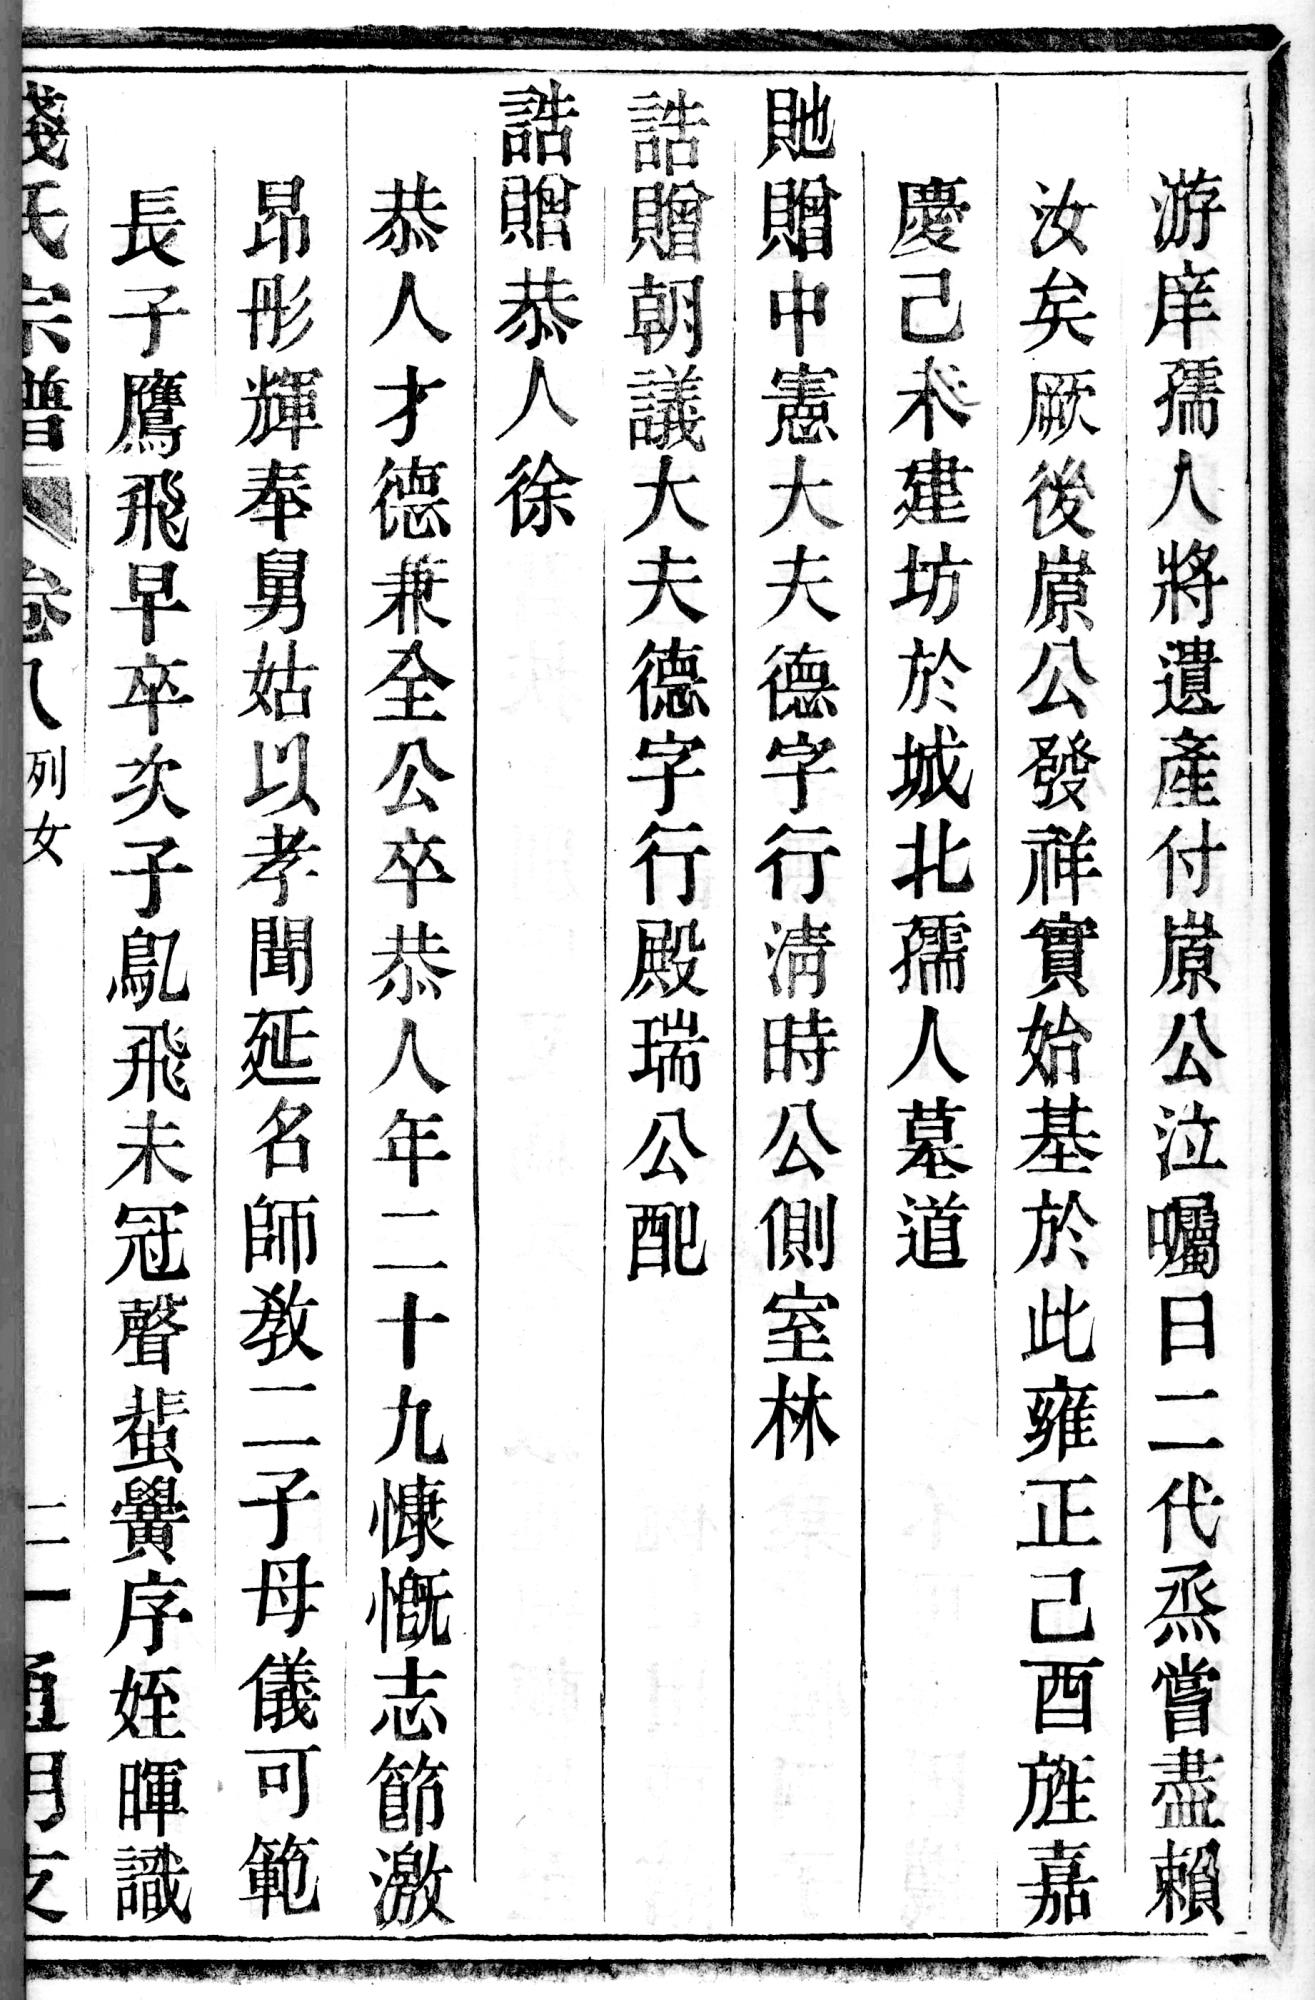 游庠孺人將遺產付㟲公泣囑曰二代烝嘗盡賴
汝矣厥後㟲公發祥實始基於此雍正己酉旌嘉
慶己未建坊於城北孺人墓道
貤贈中憲大夫德字行淸時公側室林
誥贈朝議大夫德字行殿瑞公配
誥贈恭人徐
恭人才德兼全公卒恭人年二十九慷慨志節激
昂彤輝奉舅姑以孝聞延名師敎二子母儀可範
長子鷹飛早卒次子鳧飛未冠聲蜚黌序姪暉識
錢氏宗譜 卷八 列女 二一 通明支